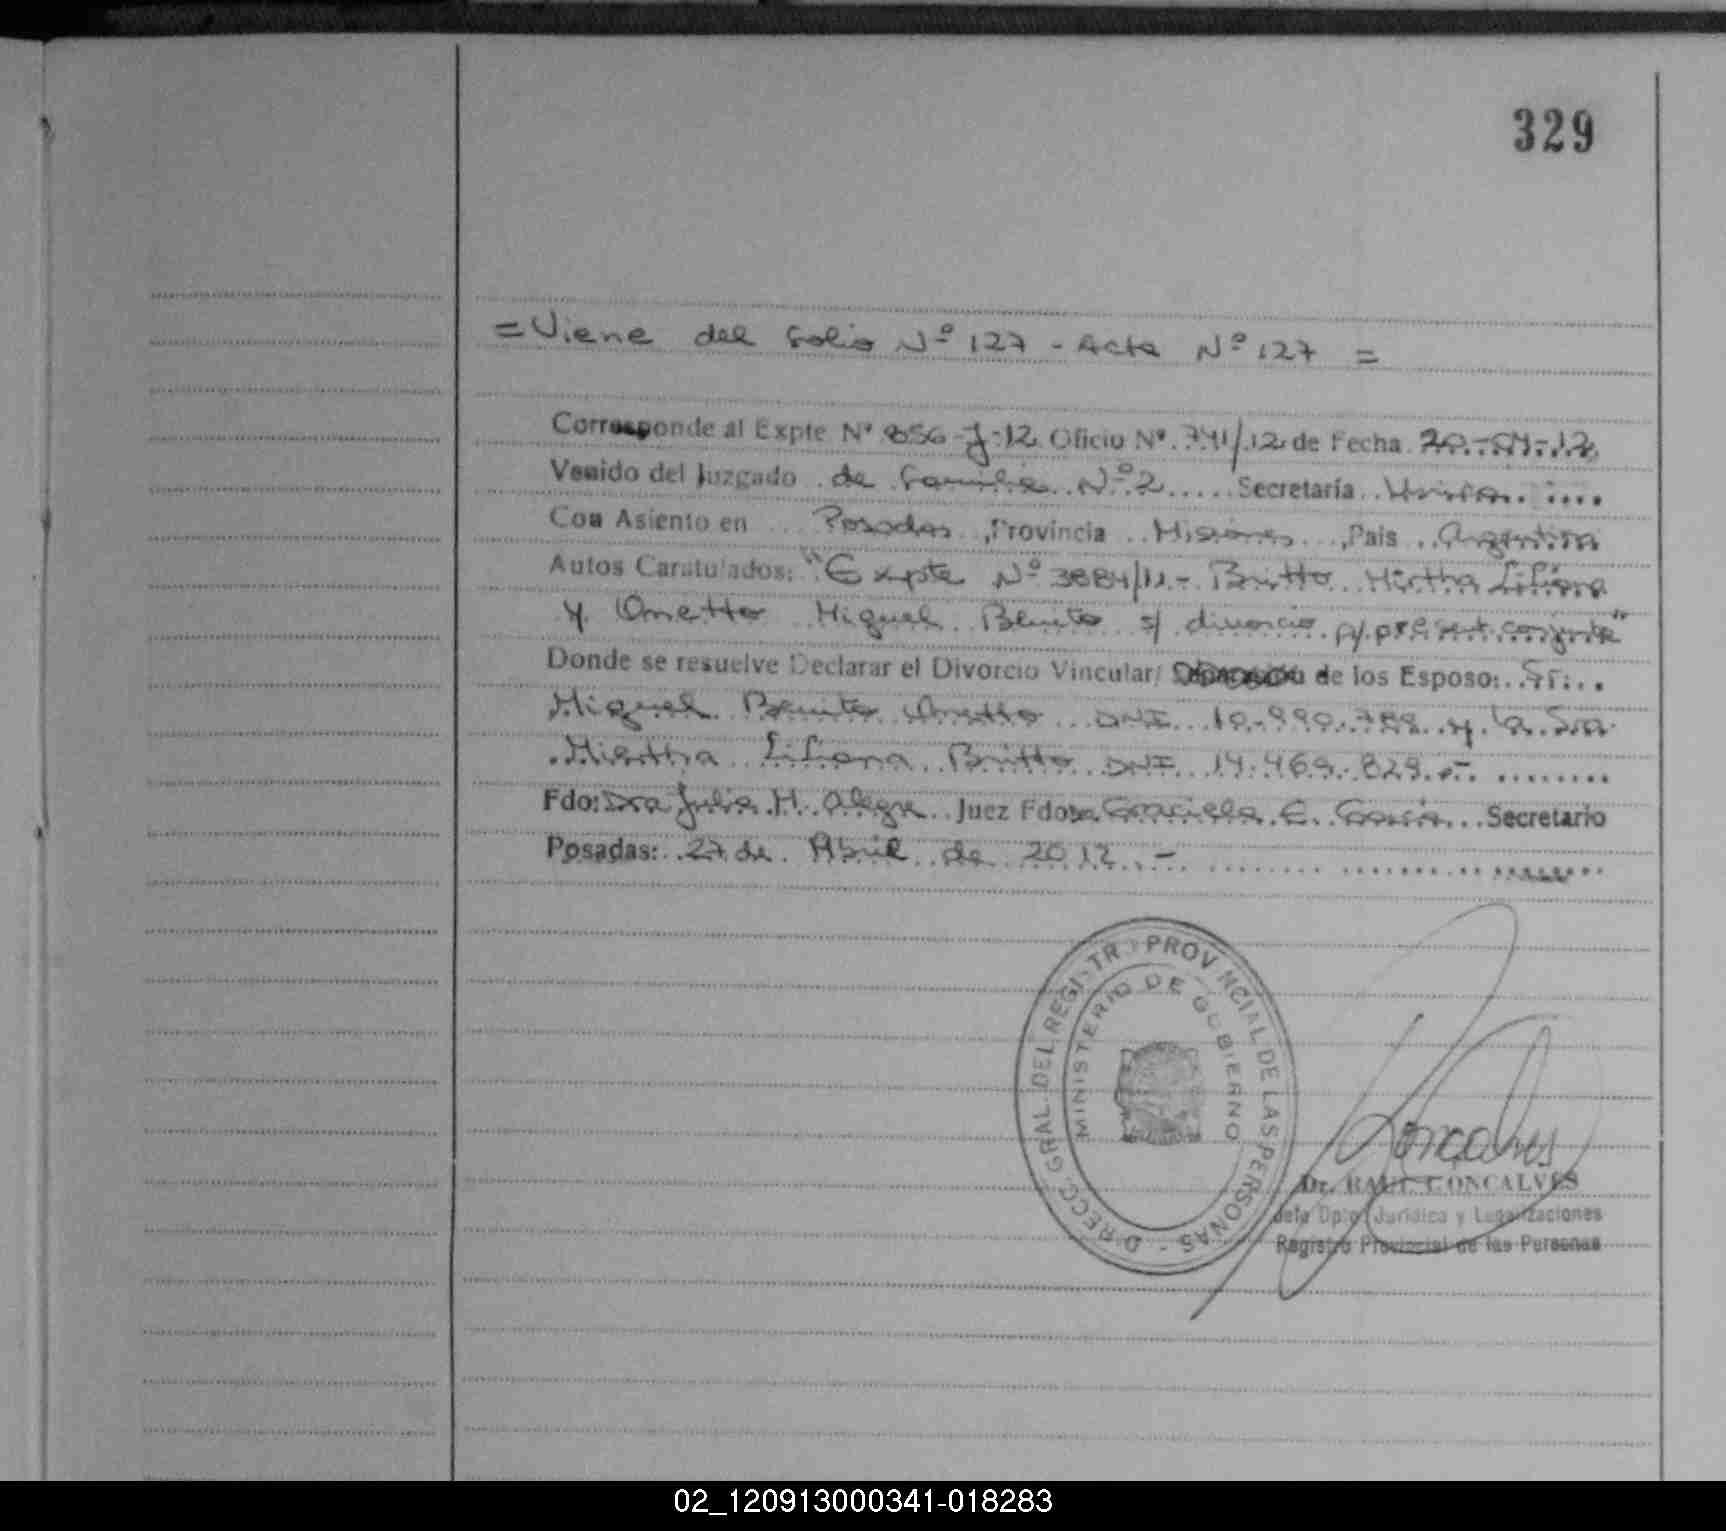 329
= Viene del folio Nº 127 - Acta Nº 127 =
Corresponde al Expte Nº 856-J-12 Oficio Nº 741/12 de Fecha 20-04-12
Venido del Juzgado de Familia Nº 2 Secretaría Única
Con Asiento en Posadas, Provincia Misiones, Pais Argentina
Autos Caratulados: "Expte Nº 3884/11.- Britto Mirtha Liliana
y Onetto Miguel Benito s/ divorcio p/ present. conjunta"
Donde se resuelve Declarar el Divorcio Vincular/ de los Esposo: Sr.
Miguel Benito Onetto DNI 10.990.789 y la Sra.
Mirtha Liliana Britto DNI 14.469.829.-
Fdo: Dra Julia H. Alegre Juez Fdo: Graciela E. Garcia Secretario
Posadas: 27 de Abril de 2012.-
DIRECC. GRAL. DEL REGISTRO PROVINCIAL DE LAS PERSONAS -
MINISTERIO DE GOBIERNO
Goncalves
Dr. RAUL GONCALVES
Jefe Dpto. Juridico y Legalizaciones
Registro Provincial de las Personas
02_120913000341-018283